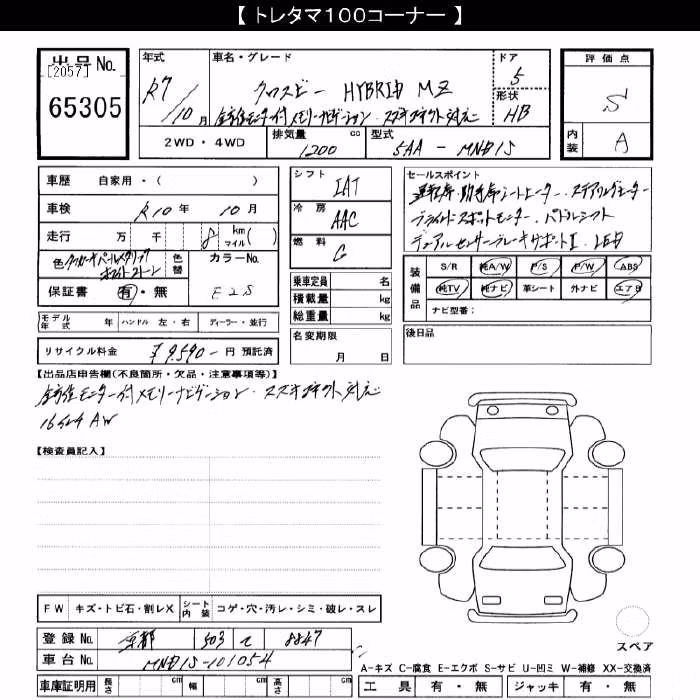 【 トレタマ100コーナー 】
出品No.
[2057]
65305
年式
R7/10月
車名・グレード
クロスビー HYBRID MZ
全方位モニター付メモリーナビゲーション スズキコネクト対応
ドア
5
形状
HB
評価点
S
内装
A
2WD・4WD
排気量
1200 cc
型式
5AA-MND1S
車歴 自家用・( )
車検 R10年 10月
走行 万 千 8 km マイル( )
色 クールカーキパールメタリック
色替
カラーNo.
E2S
保証書 有・無
モデル年式 年 ハンドル 左・右 ディーラー・並行
リサイクル料金 ¥9,590-円 預託済
シフト
IAT
冷房
AAC
燃料
G
乗車定員 名
積載量 kg
総重量 kg
名変期限
月 日
セールスポイント
運転席・助手席シートヒーター ステアリングヒーター
ブラインドスポットモニター パドルシフト
デュアルセンサーブレーキサポートⅡ LED
装備品
S/R 純A/W P/S P/W ABS
純TV 純ナビ 革シート 外ナビ エアB
ナビ型番:
後日品
【出品店申告欄(不良箇所・欠品・注意事項等)】
全方位モニター付メモリーナビゲーション・スズキコネクト対応
AW
【検査員記入】
FW キズ・トビ石・割レX シート内装 コゲ・穴・汚レ・シミ・破レ・スレ
登録No. 京都 503 て 8847
車台No. MND1S-101054
車庫証明用 長さ cm 幅 cm 高さ cm
スペア
A-キズ C-腐食 E-エクボ S-サビ U-凹ミ W-補修 XX-交換済
工具 有・無 ジャッキ 有・無